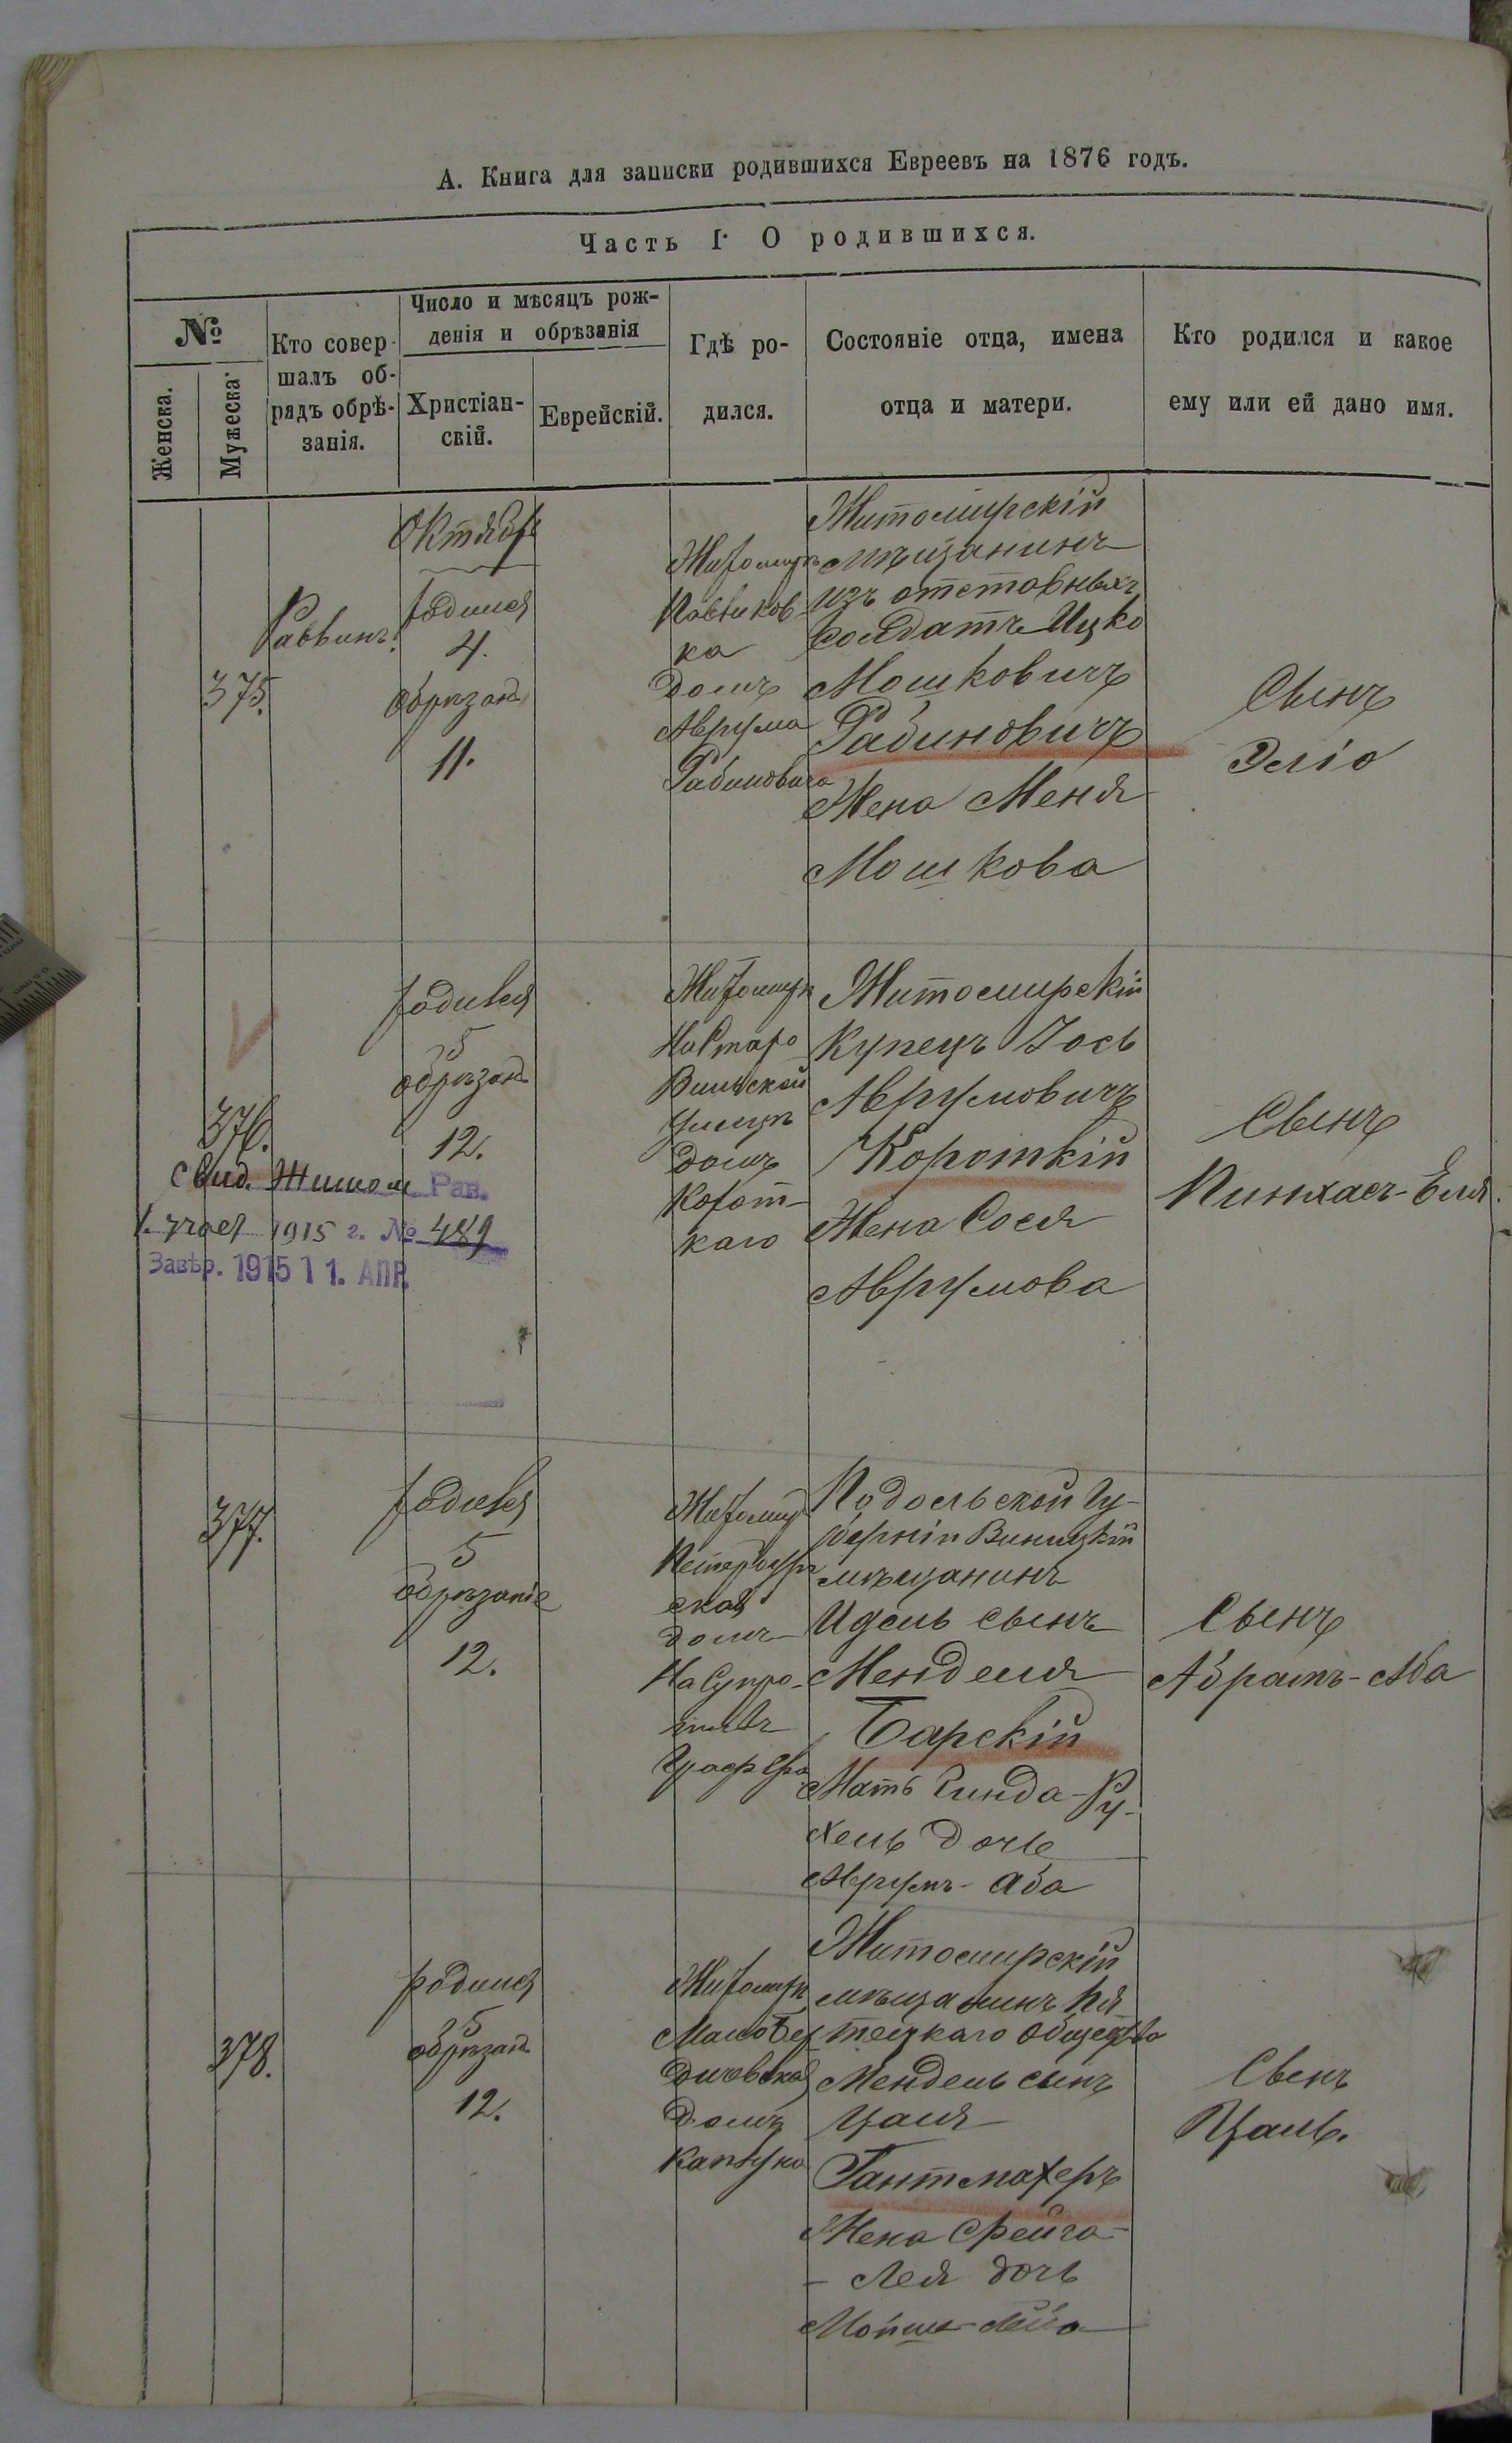 А. Книга для записки родившихся Евреевъ на 1876 годъ.
Часть I. О родившихся.
№
Женска.
Мужеска.
Кто совер-
шалъ об-
рядъ обрѣ-
занія.
Число и мѣсяцъ рож-
денія и обрѣзанія
Христіан-
скій.
Еврейскій.
Гдѣ ро-
дился.
Состояніе отца, имена
отца и матери.
Кто родился и какое
ему или ей дано имя.
375.
Раввинъ.
Октябрь
родился
4.
обрѣзан
11.
Житомиръ
ка
домъ
Аврума
Рабиновича
Житомирскій
мѣщанинъ
изъ отставныхъ
солдатъ Ицко
Мошковичъ
Рабиновичъ
Жена Меня
Мошкова
Сынъ
Эліо
376.
свид. Житом Рав.
1915 г. № 489
Завѣр. 1915 11. АПР.
родился
5
обрѣзан
12.
Житомиръ
На Старо
Вильской
Улицѣ
домъ
Корот-
каго
Житомирскій
Купецъ Іось
Аврумовичъ
Короткій
Жена Сося
Аврумова
Сынъ
Пинхасъ-Еля.
377.
родился
5
обрѣзаніе
12.
Житомир
Петербург
ская
домъ
На Супро-
тивъ
Подольской Гу-
берніи Виницкій
мѣщанинъ
Идель сынъ
Менделя
Барскій
Мать Гинда-Ру-
хель дочь
Аврумъ-Аба
Сынъ
Абрамъ-Аба
378.
родился
5
обрѣзан
12.
Житомиръ
Малобер
дичевская
домъ
Житомирскій
мѣщанинъ Пя
тецкаго общества
Мендель сынъ
Цаля
Гантмахеръ
Жена Фейга-
- Лея дочь
Сынъ
Цаль.